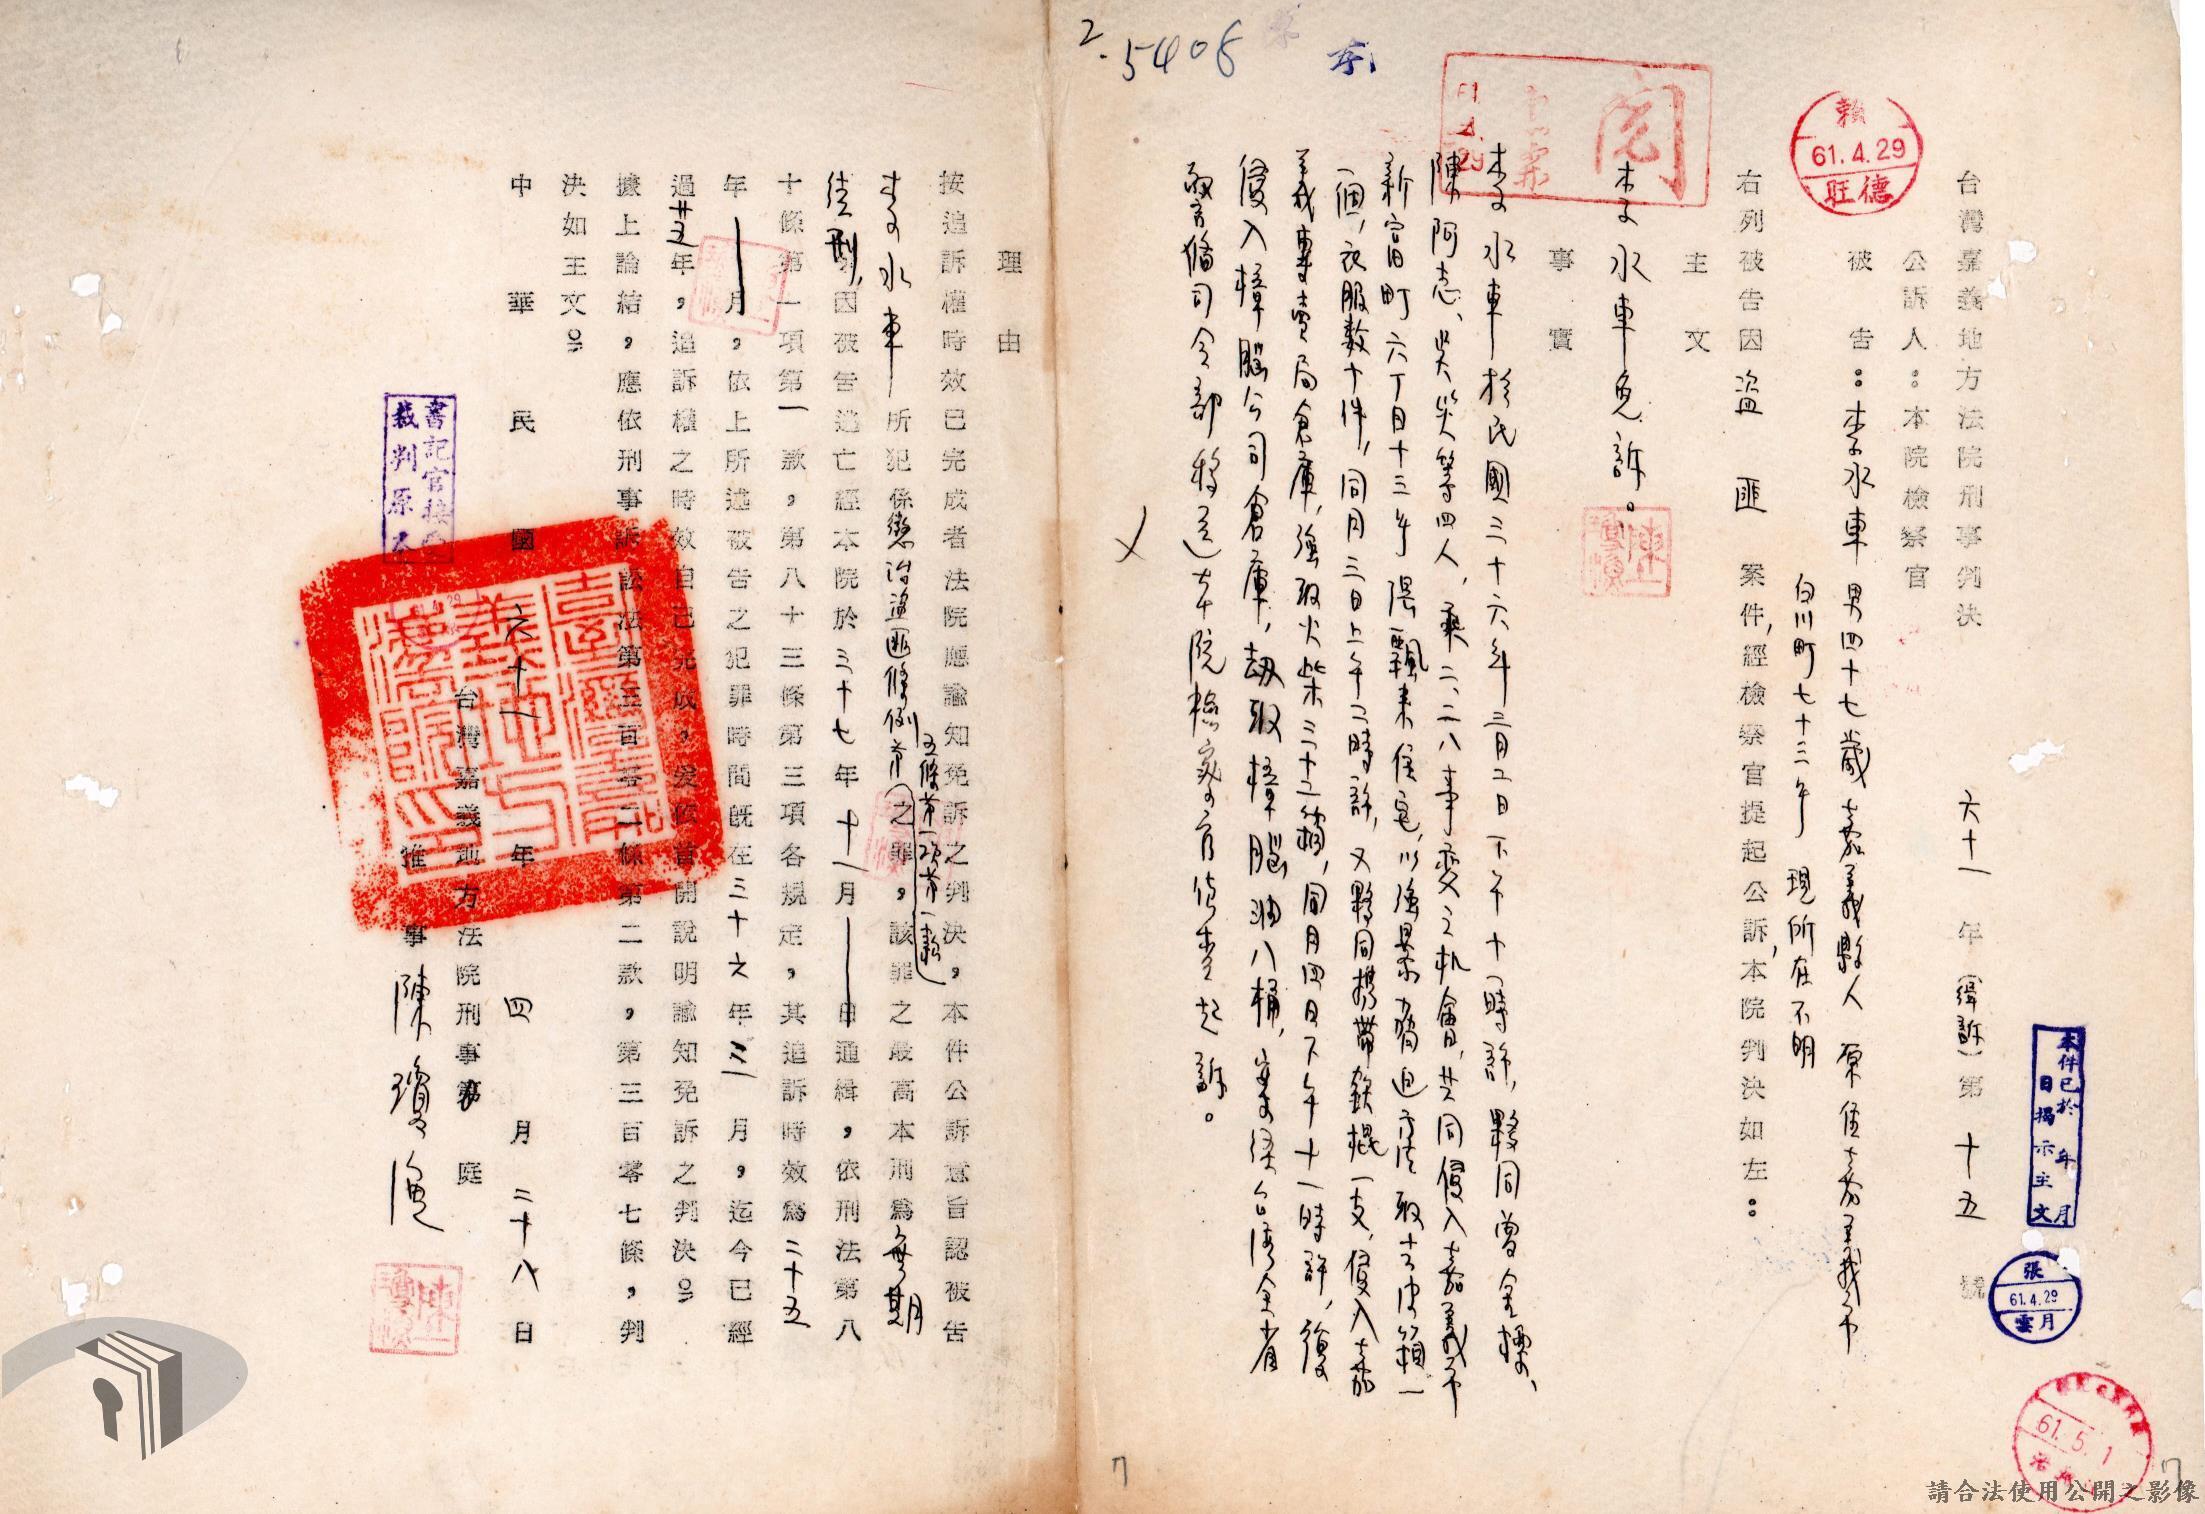 台灣嘉義地方法院刑事判決　六十一年(緝訴)第十五號
公訴人：本院檢察官
被告：李水車 男四十七歲 嘉義縣人 原住嘉義市
白川町七十三年 現所在不明
右列被告因盜匪案件，經檢察官提起公訴，本院判決如左：
主文
李水車免訴。
事實
李水車於民國三十六年三月二日下午十一時許，夥同曾金標、
陳阿志、吳等四人，乘二、二八事變之机會，共同侵入嘉義市
新富町六丁目十三年 陽飄來住宅，以強暴脅迫方法取去皮箱一
個，衣服数十件，同月三日上午二時許，又夥同携帶鉄棍一支，侵入嘉
義專賣局倉庫，強取火柴三十二箱，同月四日下午十一時許，復
侵入樟腦公司倉庫，劫取樟腦油八桶，案經台湾全省
警備司令部移送本院檢察官偵查起訴。
理由
按追訴權時效已完成者法院應諭知免訴之判決，本件公訴意旨認被告
李水車所犯係懲治盜匪條例第五條第一項第一款之罪，該罪之最高本刑為無期
徒刑，因被告逃亡經本院於三十七年十一月日通緝，依刑法第八
十條第一項第一款，第八十三條第三項各規定，其追訴時效為二十五
年月，依上所述被告之犯罪時間既在三十六年三月，迄今已經
過廿五年，追訴權之時效自己完成，爰依首開說明諭知免訴之判決。
據上論結，應依刑事訴訟法第三百零二條第二款，第三百零七條，判
決如主文。
中華國六十一年四月二十八日
台灣嘉義地方法院刑事第庭
推事 陳瓊
2.5408
閱
61.4.29
賴
61.4.29
旺德
本件已於 年 月
日揭示主文
張
61.4.29
雲月
61.5.1
書記官接
裁判原本
61.4.29
7
7
請合法使用公開之影像